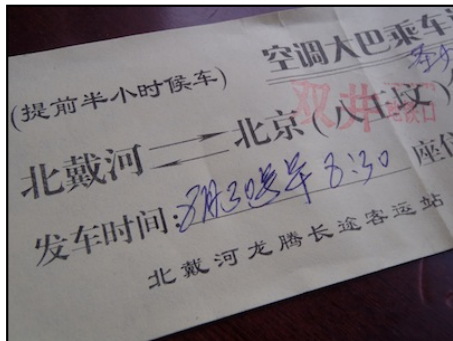 空调大巴乘车
(提前半小时候车)
北戴河 北京(八王坟)
双井
发车时间:8月30号早8:30 座位
北戴河龙腾长途客运站